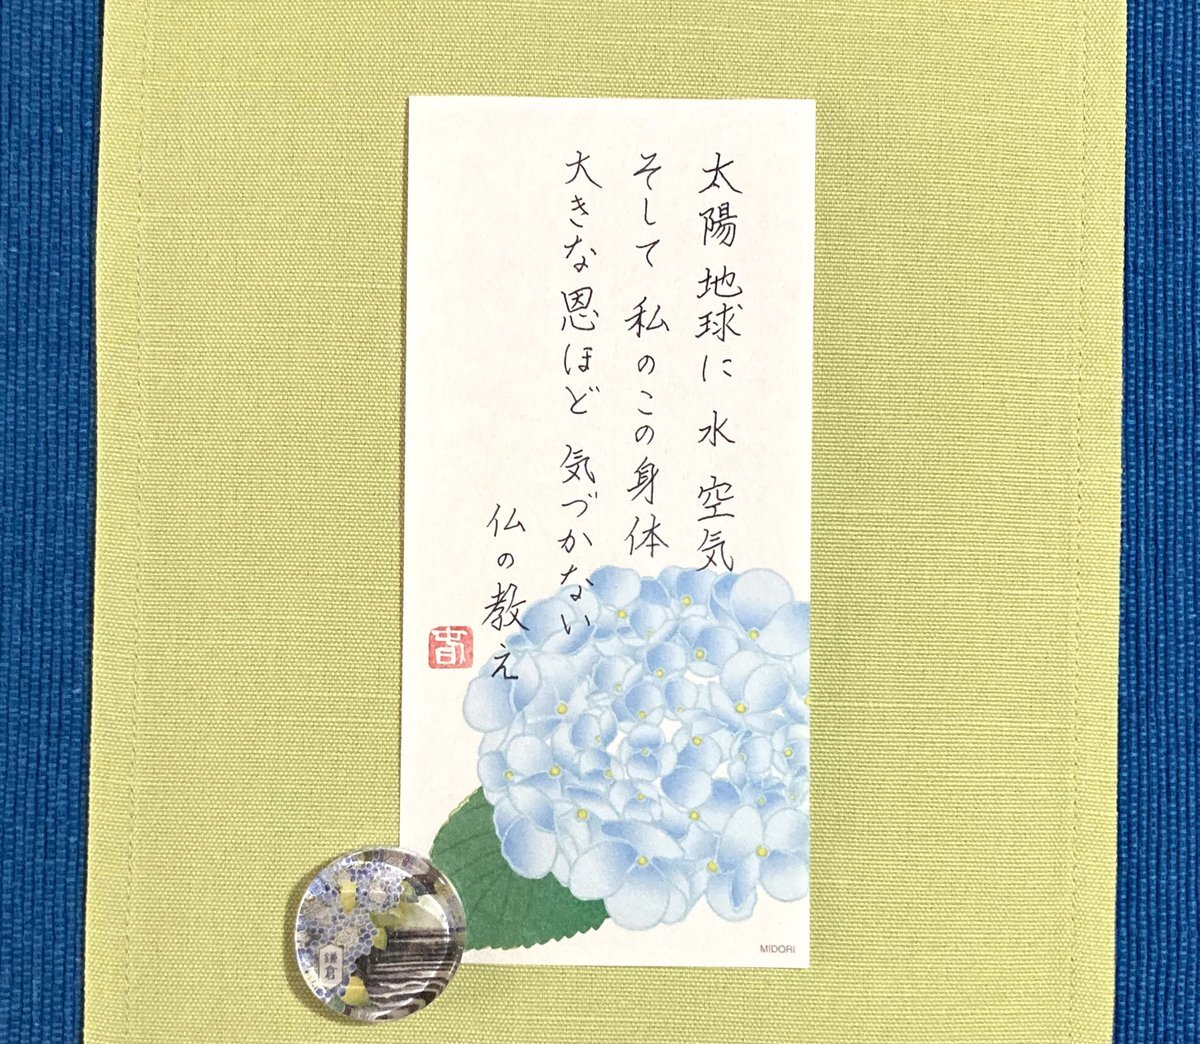 太陽 地球に 水 空気
そして 私のこの身体
大きな恩ほど 気づかない
仏の教え
鎌倉
MIDORI